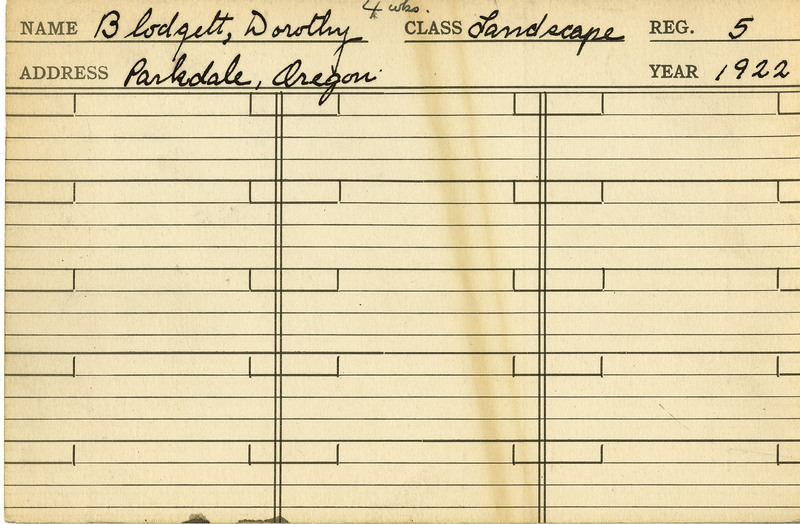 4 wks.
NAME Blodgett, Dorothy CLASS Landscape REG. 5
ADDRESS Parkdale, Oregon. YEAR 1922